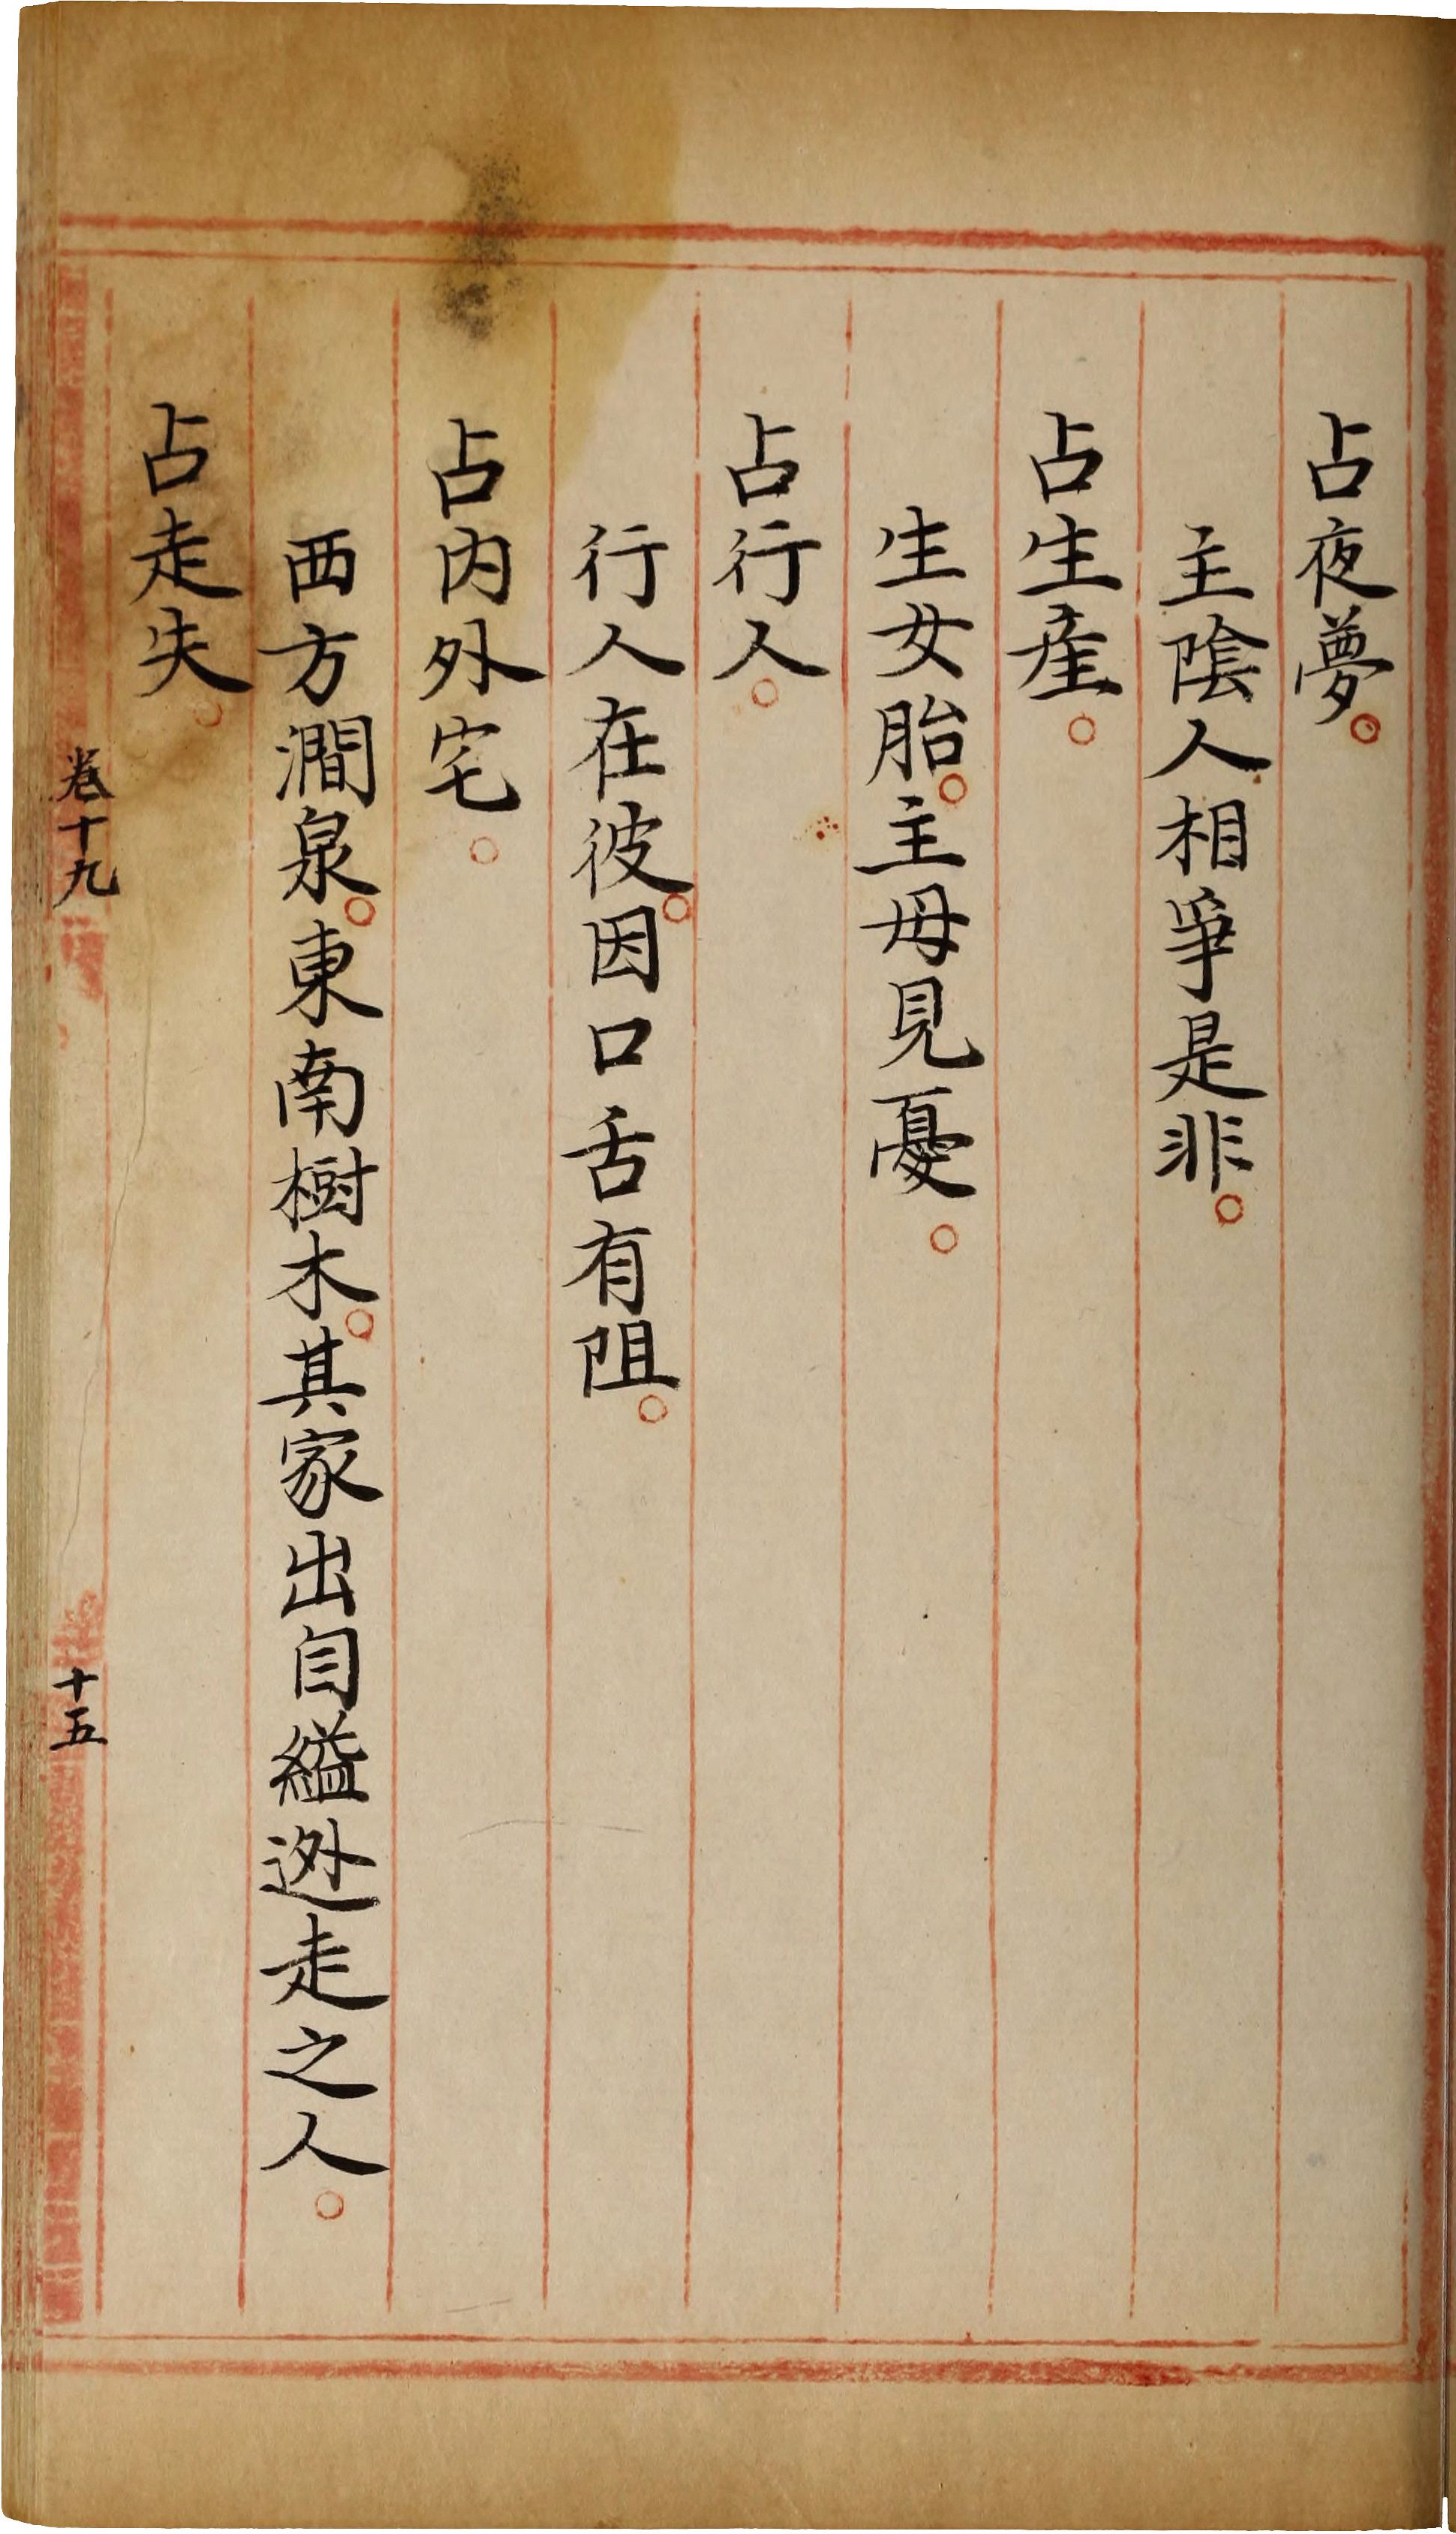 占夜夢。
主陰人相爭是非。
占生產。
生女胎。主母見憂。
占行人。
行人在彼。因口舌有阻。
占內外宅。
西方澗泉。東南樹木。其家出自縊迯走之人。
占走失。
卷十九
十五